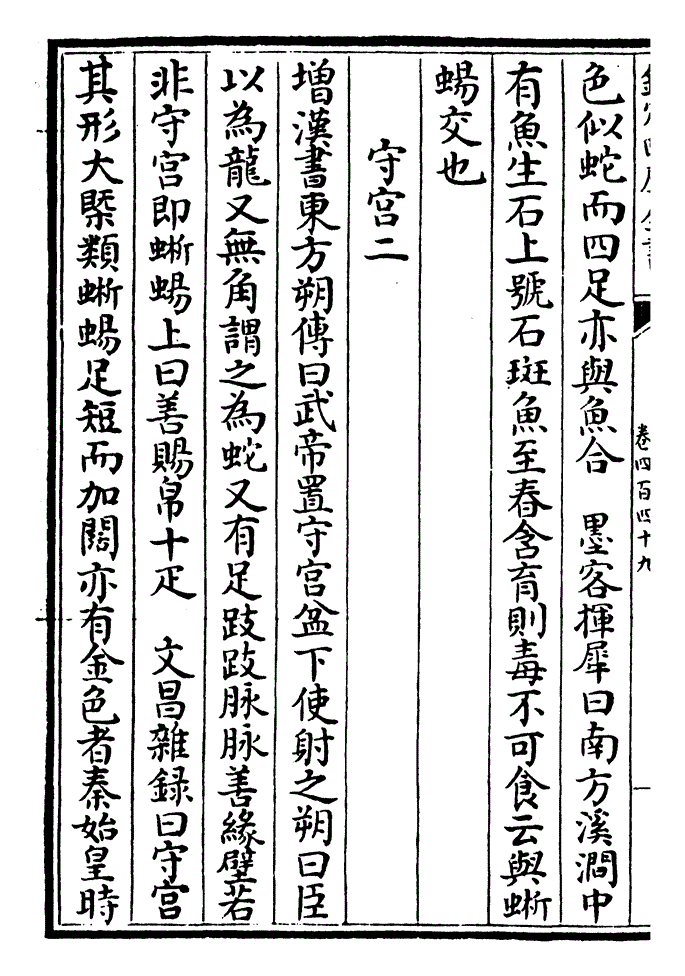 卷四百四十九
色似蛇而四足亦與魚合　墨客揮犀曰南方溪澗中
有魚生石上號石斑魚至春含育則毒不可食云與蜥
蜴交也
守宫二
增漢書東方朔傳曰武帝置守宫盆下使射之朔曰臣
以為龍又無角謂之為蛇又有足跂跂脉脉善緣壁若
非守宫即蜥蜴上曰善賜帛十疋　文昌雜録曰守宫
其形大槩類蜥蜴足短而加闊亦有金色者秦始皇時